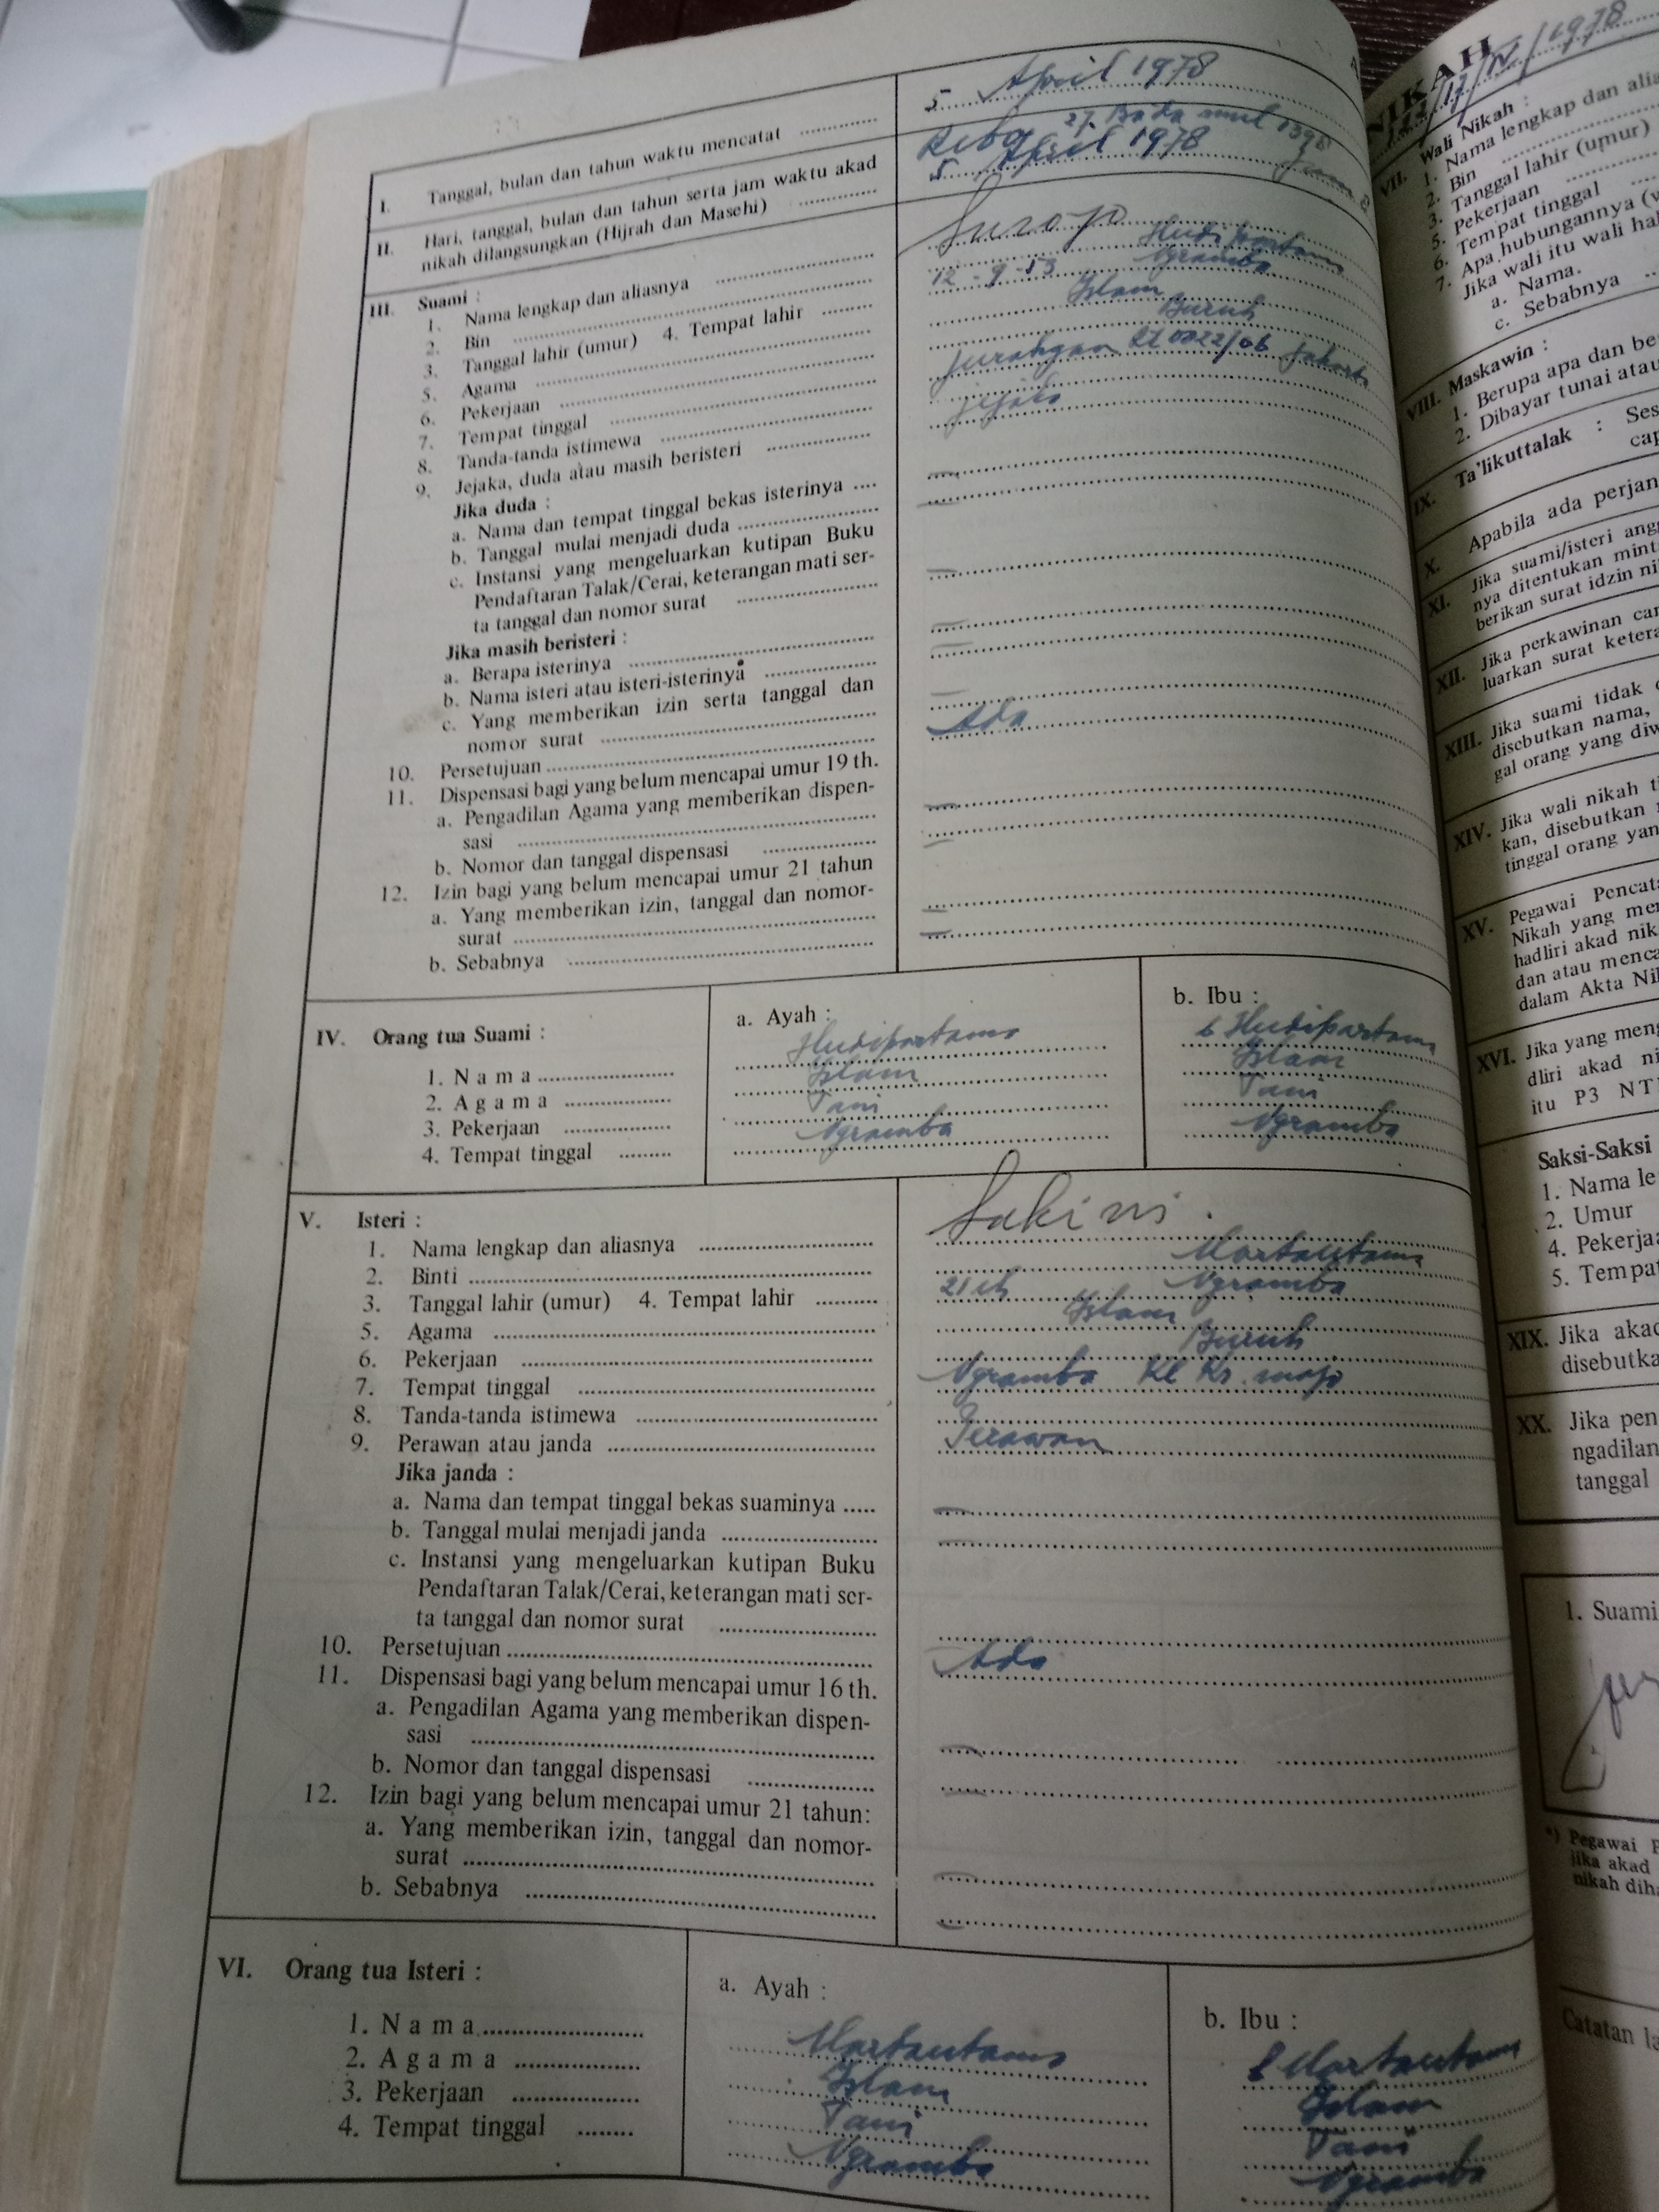 I. Tanggal, bulan dan tahun waktu mencatat 5 April 1978
II. Hari, tanggal, bulan dan tahun serta jam waktu akad Rebo 27
nikah dilangsungkan (Hijrah dan Masehi) 5 April 1978
III. Suami :
1. Nama lengkap dan aliasnya Suroyo
2. Bin Hudipartams
3. Tanggal lahir (umur) 4. Tempat lahir 12-9-53 Ngramba
5. Agama Islam
6. Pekerjaan Buruh
7. Tempat tinggal
8. Tanda-tanda istimewa
9. Jejaka, duda atau masih beristeri
Jika duda :
a. Nama dan tempat tinggal bekas isterinya
b. Tanggal mulai menjadi duda
c. Instansi yang mengeluarkan kutipan Buku
Pendaftaran Talak/Cerai, keterangan mati ser-
ta tanggal dan nomor surat
Jika masih beristeri :
a. Berapa isterinya
b. Nama isteri atau isteri-isterinya
c. Yang memberikan izin serta tanggal dan
nomor surat
10. Persetujuan Ada
11. Dispensasi bagi yang belum mencapai umur 19 th.
a. Pengadilan Agama yang memberikan dispen-
sasi
b. Nomor dan tanggal dispensasi
12. Izin bagi yang belum mencapai umur 21 tahun
a. Yang memberikan izin, tanggal dan nomor-
surat
b. Sebabnya
IV. Orang tua Suami : a. Ayah : b. Ibu :
1. Nama Hudipartams Hudipartams
2. Agama Islam Islam
3. Pekerjaan Tani Tani
4. Tempat tinggal Ngramba Ngramba
V. Isteri :
1. Nama lengkap dan aliasnya Sakini
2. Binti Martautams
3. Tanggal lahir (umur) 4. Tempat lahir 21 th Ngramba
5. Agama Islam
6. Pekerjaan Buruh
7. Tempat tinggal Ngramba Kl Kr. mojo
8. Tanda-tanda istimewa
9. Perawan atau janda Perawan
Jika janda :
a. Nama dan tempat tinggal bekas suaminya
b. Tanggal mulai menjadi janda
c. Instansi yang mengeluarkan kutipan Buku
Pendaftaran Talak/Cerai, keterangan mati ser-
ta tanggal dan nomor surat
10. Persetujuan Ada
11. Dispensasi bagi yang belum mencapai umur 16 th.
a. Pengadilan Agama yang memberikan dispen-
sasi
b. Nomor dan tanggal dispensasi
12. Izin bagi yang belum mencapai umur 21 tahun:
a. Yang memberikan izin, tanggal dan nomor-
surat
b. Sebabnya
VI. Orang tua Isteri : a. Ayah : b. Ibu :
1. Nama Martautams Martautams
2. Agama Islam Islam
3. Pekerjaan Tani Tani
4. Tempat tinggal Ngramba Ngramba
NIKAH
VII. Wali Nikah :
1. Nama lengkap dan
2. Bin
3. Tanggal lahir (umur)
5. Pekerjaan
6. Tempat tinggal
7. Apa hubungannya
Jika wali itu wali
a. Nama.
c. Sebabnya
VIII. Maskawin :
1. Berupa apa dan
2. Dibayar tunai
IX. Ta'likuttalak :
X. Apabila ada
XI. Jika suami/isteri
nya ditentukan
berikan surat idzin
XII. Jika perkawinan
luarkan surat
XIII. Jika suami tidak
disebutkan nama,
gal orang yang
XIV. Jika wali nikah
kan, disebutkan
tinggal orang
XV. Pegawai
Nikah yang
hadliri akad
dan atau
dalam Akta
XVI. Jika yang
dliri akad
itu P3 NT
Saksi-Saksi
1. Nama
2. Umur
4.
5.
XIX. Jika
XX. Jika
tanggal
1. Suami
*) Pegawai
jika akad
nikah
Catatan